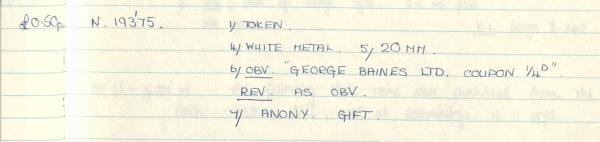 £0.50p N. 193'75. 1/ TOKEN.
4/ WHITE METAL. 5/ 20 MM.
6/ OBV. "GEORGE BAINES LTD. COUPON ¼D".
REV. AS OBV.
7/ ANONY. GIFT.